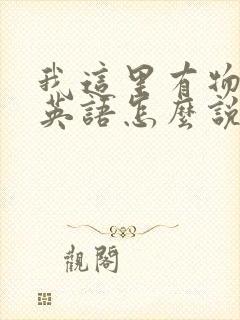 我這里有物
英語怎麼說
觀閣